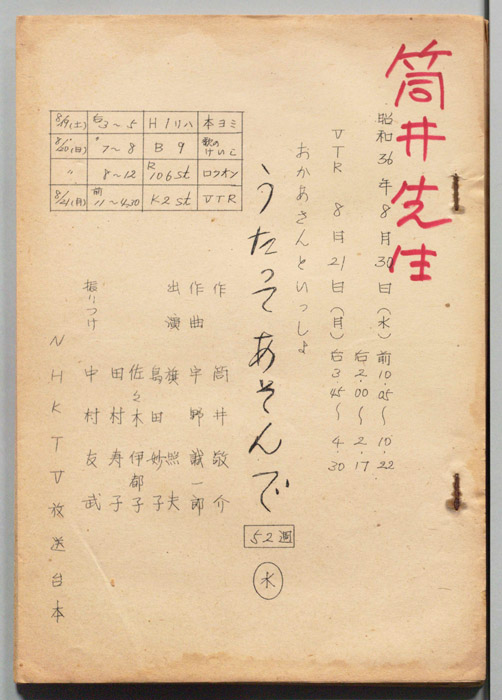 筒井先生
昭和36年8月30日(水)前10.05〜10.22
后2.00〜2.17
VTR 8月21日(月)后3.45〜4.30
おかあさんといっしょ
うたってあそんで
52週
水
作 筒井敬介
作曲 宇野誠一郎
出演 旗照夫
島田妙子
佐々木伊都子
田村寿子
振りつけ 中村友武
NHKTV放送台本
8/19(土) 后3〜5 H1リハ 本ヨミ
8/20(日) 〃7〜8 B9 歌のけいこ
〃 8〜12 R106st ロクオン
8/21(月) 前11〜4.30 K2st VTR